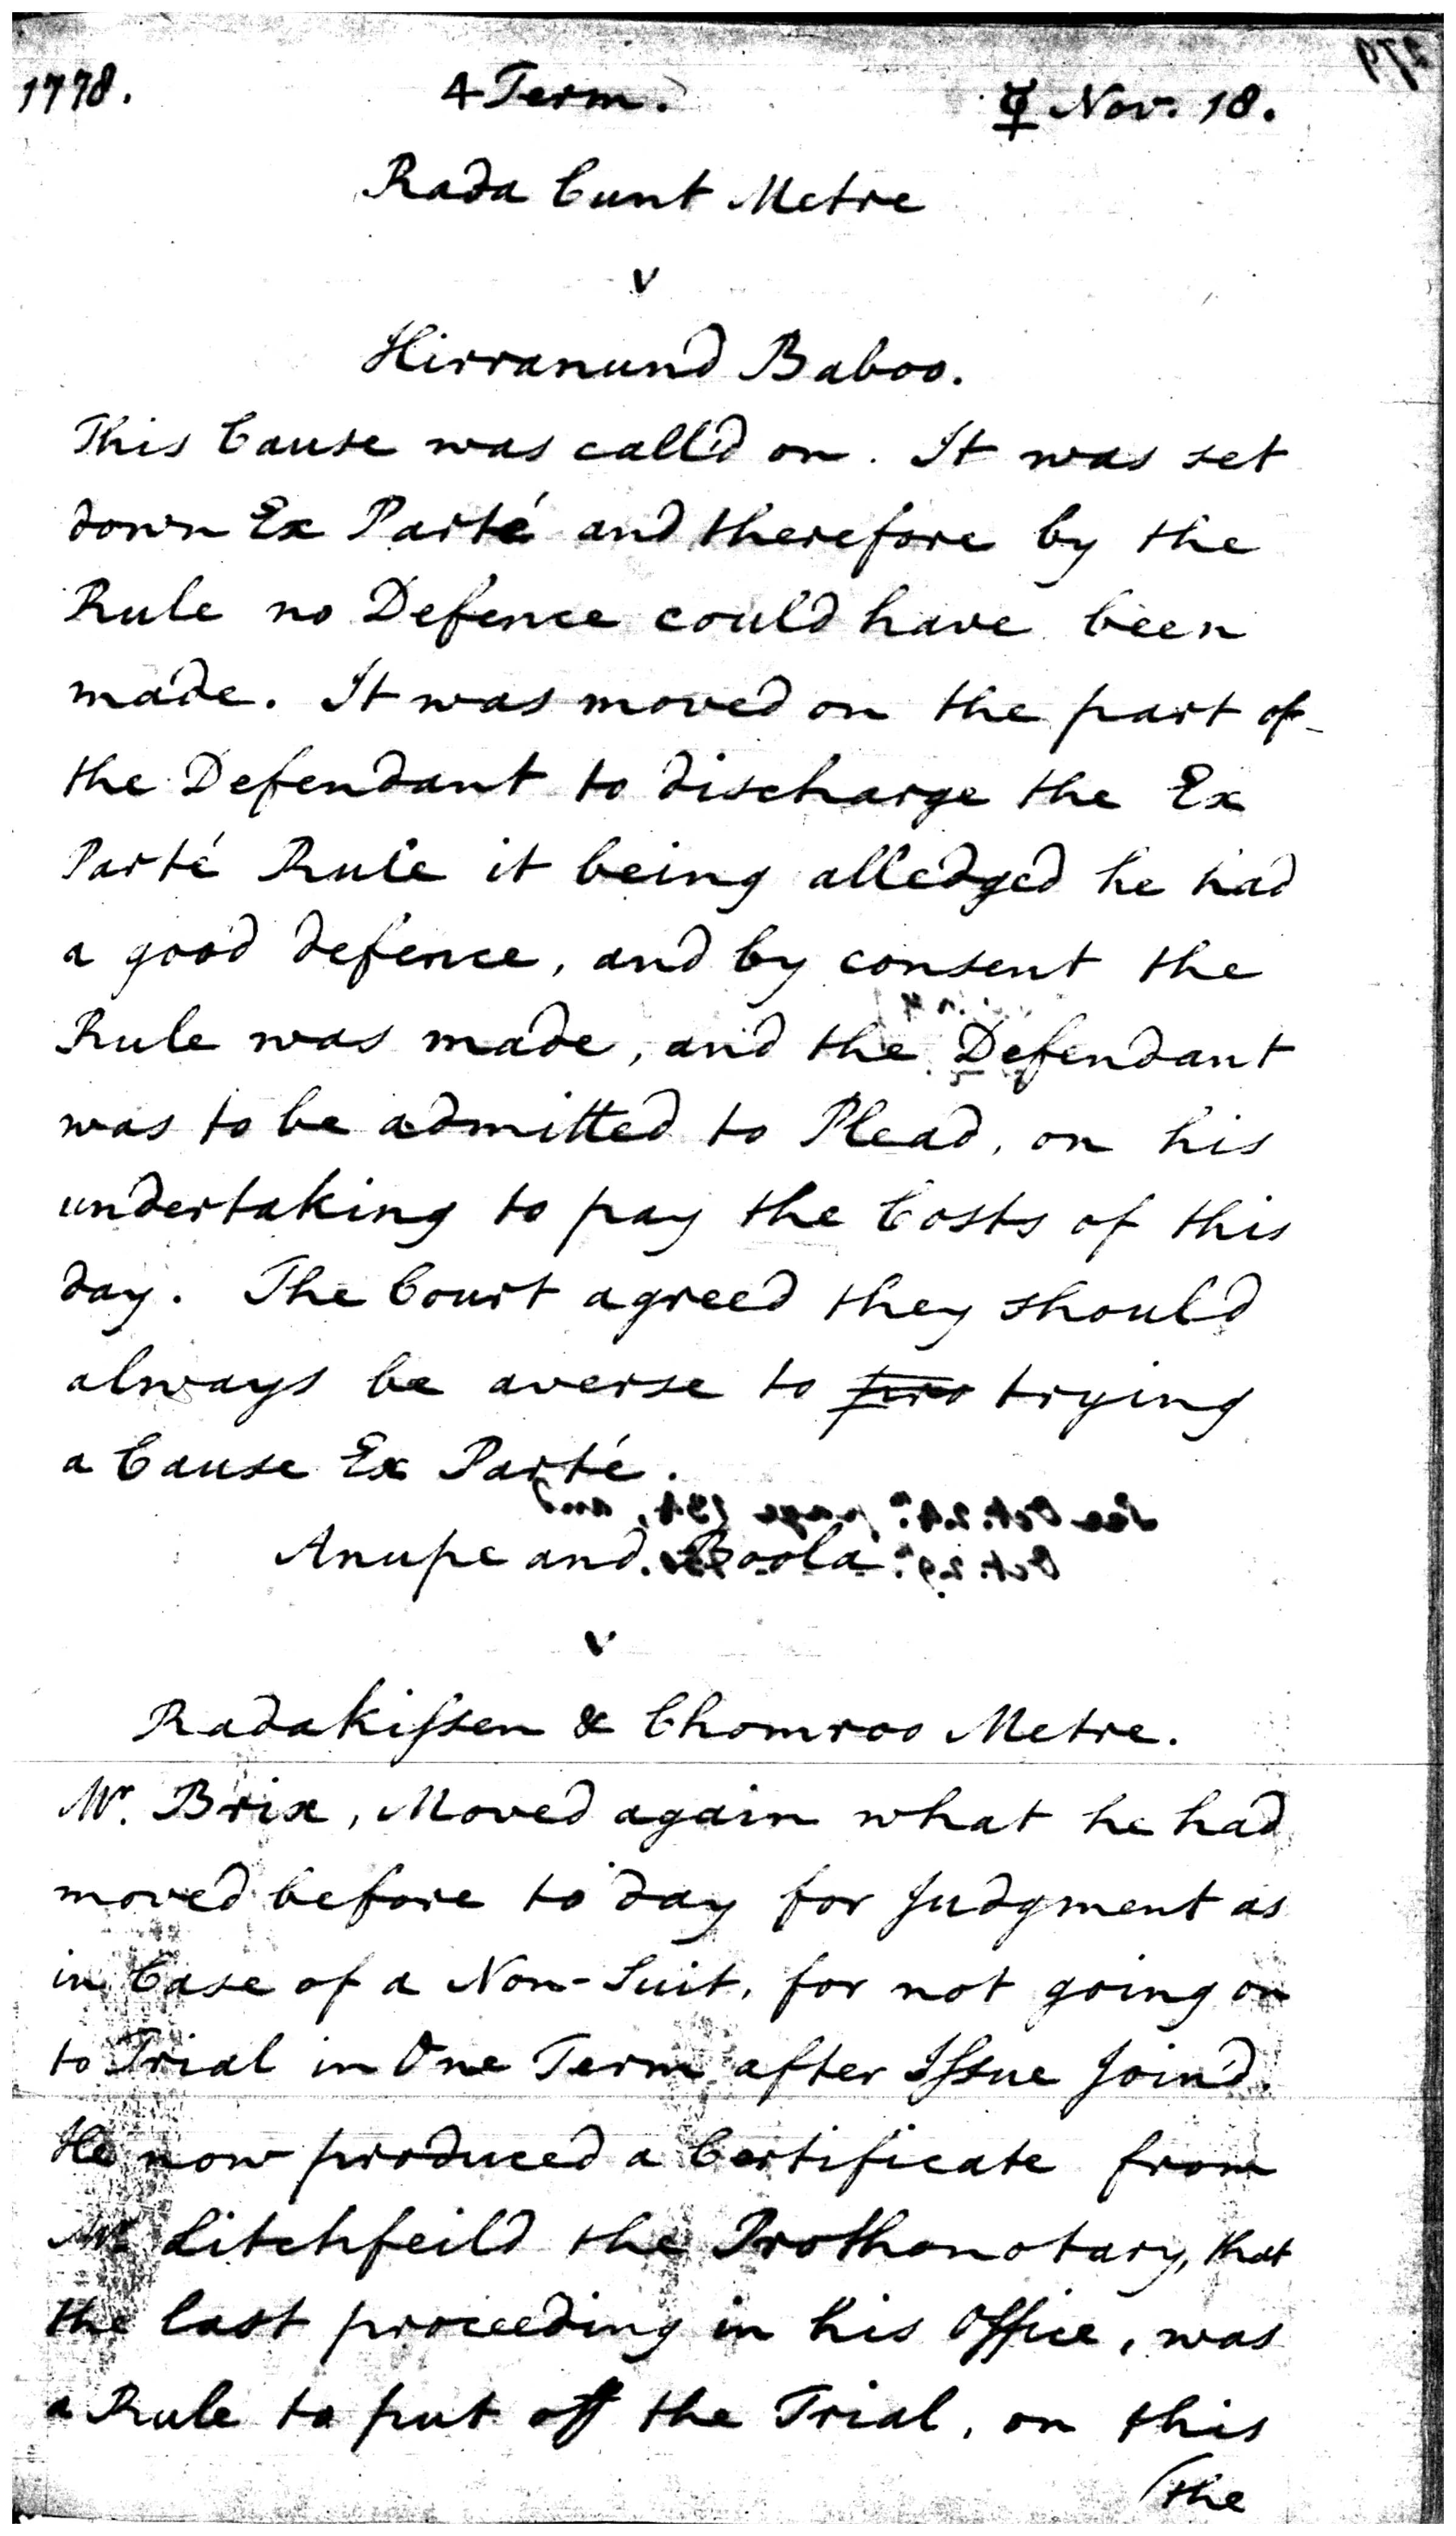 1778. 4 Term. ☿ Nov. 18.
Rada Cunt Metre
v
Hirranund Baboo.
This Cause was call'd on. It was set
down Ex Parté and therefore by the
Rule no Defence could have been
made. It was moved on the part of
the Defendant to discharge the Ex
Parté Rule it being alledged he had
a good defence, and by consent the
Rule was made, and the Defendant
was to be admitted to Plead, on his
undertaking to pay the Costs of this
day. The Court agreed they should
always be averse to trying
a Cause Ex Parté.
Anupe and Boola
v
Radakissen & Chomroo Metre.
Mr. Brix, Moved again what he had
moved before to day for Judgment as
in Case of a Non-Suit, for not going on
to Trial in One Term after Issue Join'd.
He now produced a Certificate from
Mr. Litchfeild the Prothonotary, that
the last proceeding in his Office, was
a Rule to put off the Trial, on this
(the